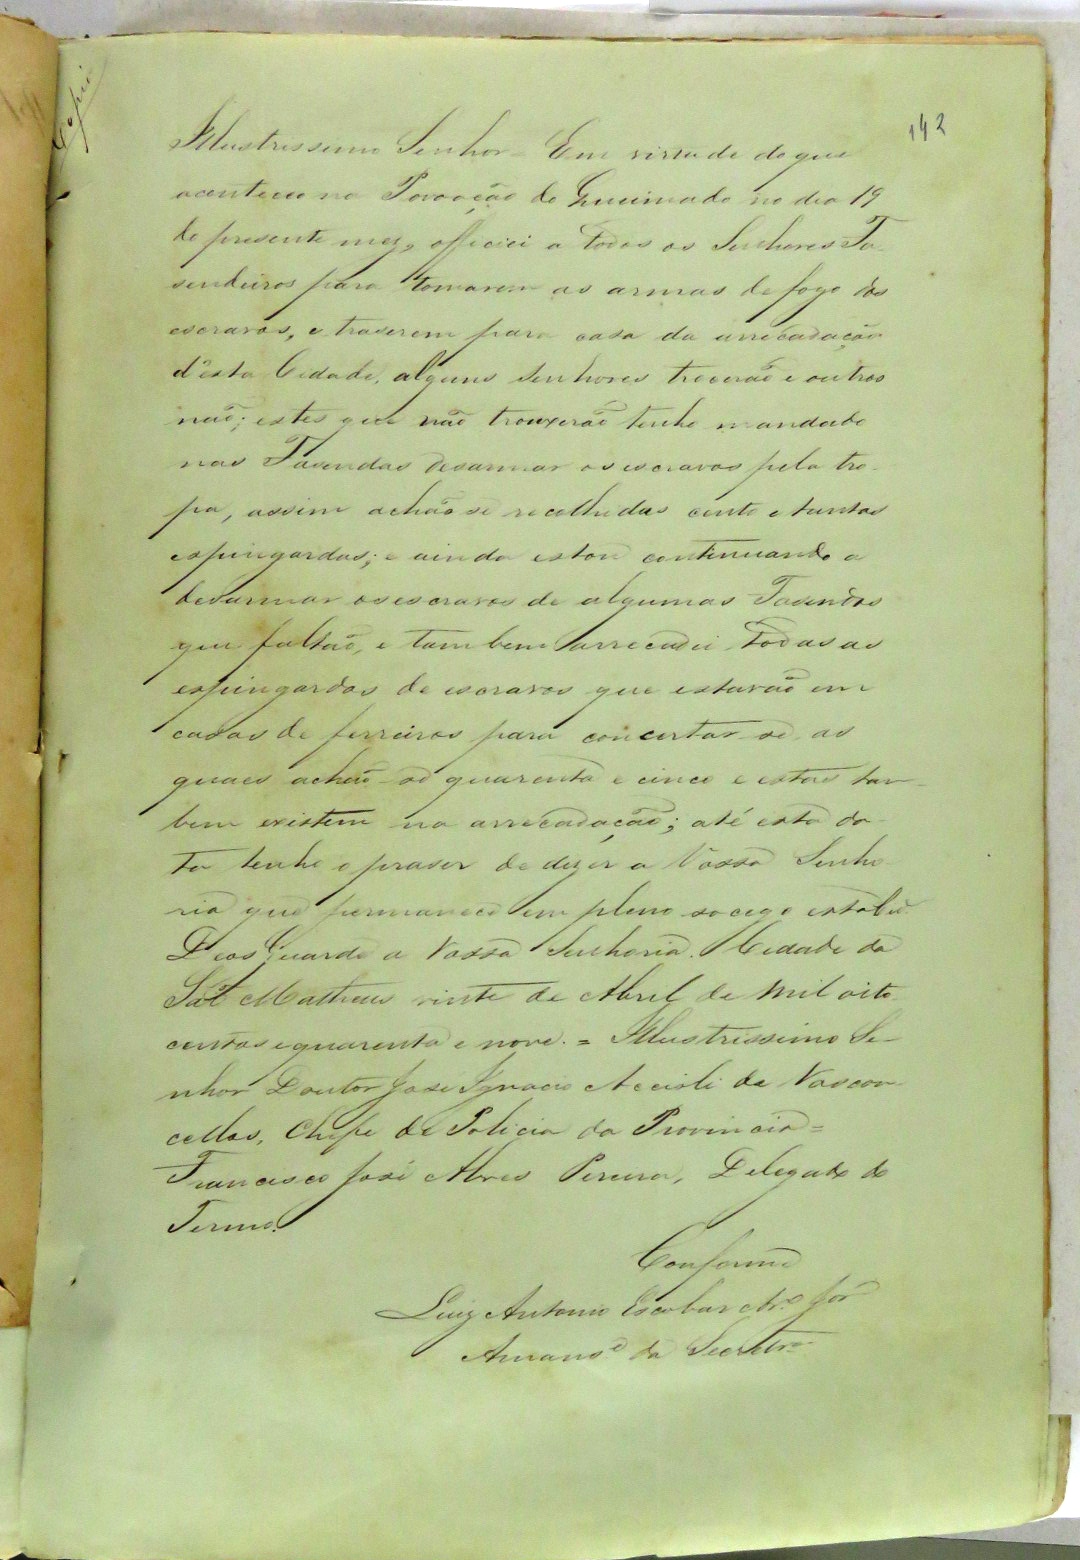 Copia
142
Illustrissimo Senhor = Em virtude do que
aconteceo na Povoação do Queimado no dia 19
do presente mez, officiei a todos os Senhores Fa-
sendeiros para tomarem as armas de fogo dos
escravos, e traserem para casa da arrecadação
d'esta Cidade, alguns Senhores trocerão e outros
não; estes que não trouxerão tenho mandado
nas Fasendas desarmar os escravos pela tro-
pa, assim achão se recolhidas cento e tantas
espingardas; e ainda estou continuando a
desarmar os escravos de algumas Fasendas
que faltão, e tambem arrecadei todas as
espingardas de escravos que estavão em
casas de ferreiros para concertar-se, as
quaes achão-se quarenta e cinco e estas tam-
bem existem na arrecadação; até esta da-
ta tenho o praser de dizer a Vossa Senho-
ria que permanece em pleno socego
Deos Guarde a Vossa Senhoria. Cidade da
São Matheus vinte de Abril de mil oito-
centos e quarenta e nove. = Illustrissimo Se-
nhor Doutor José Ignacio Accioli de Vascon-
cellos, Chefe de Policia da Provincia =
Francisco José Alves Pereira, Delegado do
Termo.
Conforme
Luiz Antonio Escobar
Amans.e da Secretr.a